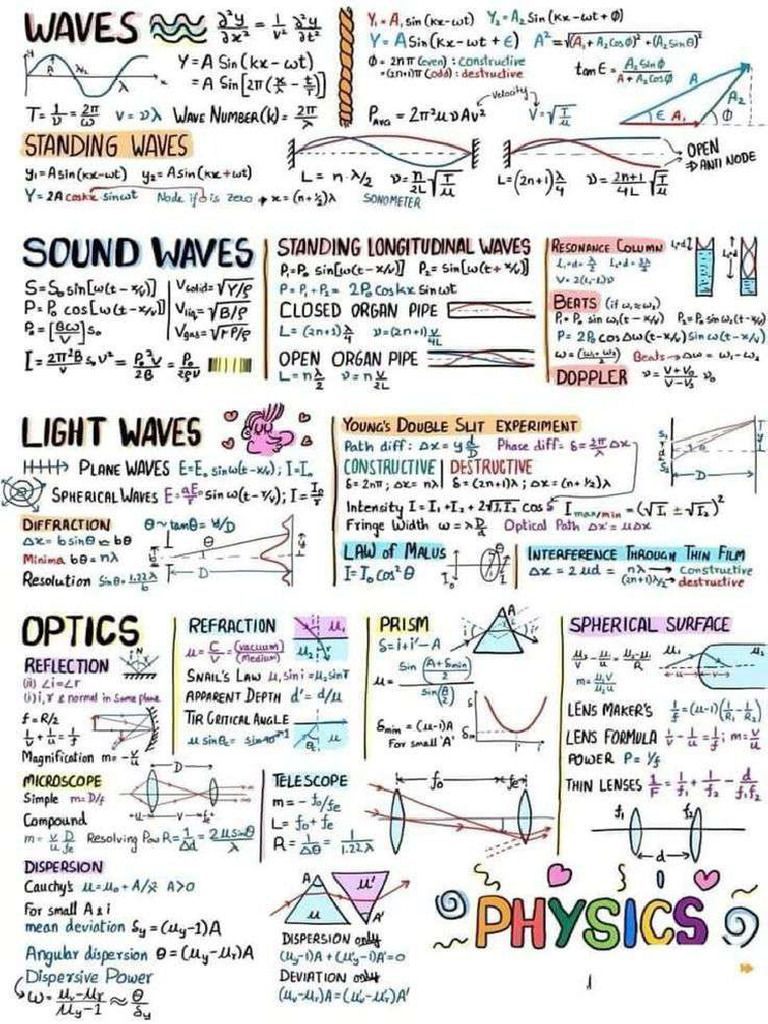 WAVES ∂²y/∂x² = 1/v² ∂²y/∂t²
Y = A Sin(kx-ωt)
= A Sin[2π(x/λ - t/T)]
T = 1/ν = 2π/ω   v = νλ   WAVE NUMBER(k) = 2π/λ
Y₁ = A₁ sin(kx-ωt)   Y₂ = A₂ Sin(kx-ωt+ϕ)
Y = A Sin(kx-ωt+ε)   A² = √(A₁+A₂Cosϕ)²+(A₂Sinθ)²
ϕ = 2nπ (even) : constructive
= (2n+1)π (odd) : destructive
tan ε = A₂ Sinϕ / A₁+A₂Cosϕ
A A₂ ε A₁ ϕ
velocity
P avg = 2π²μνAv²   V = √T/μ
STANDING WAVES
y₁ = A sin(kx-ωt)   y₂ = A Sin(kx+ωt)
Y = 2A coskx sinωt   Node if is zero x = (n+½)λ
L = n·λ/2   ν = n/2L √T/μ
SONOMETER
L = (2n+1)λ/4   ν = 2n+1/4L √T/μ
OPEN
⇒ ANTI NODE
SOUND WAVES
S = S₀ sin[ω(t-x/v)]
P = P₀ cos[ω(t-x/v)]
P₀ = [Bω/v] s₀
V solid = √Y/ρ
V liq = √B/ρ
V gas = √γP/ρ
I = 2π²B/v s₀ν² = P₀²v/2B = P₀/2ρv
STANDING LONGITUDINAL WAVES
P₁ = P₀ sin[ω(t-x/v)]   P₂ = sin[ω(t+x/v)]
P = P₁+P₂ = 2P₀ coskx sinωt
CLOSED ORGAN PIPE
L = (2n+1)λ/4   ν = (2n+1) v/4L
OPEN ORGAN PIPE
L = nλ/2   ν = n v/2L
RESONANCE COLUMN
L₁+d = λ/2   L₂+d = 3λ/4
V = 2(L₂-L₁)ν
BEATS (if ω₁≈ω₂)
P₁ = P₀ sin ω₁(t-x/v)   P₂ = P₀ sin ω₂(t-x/v)
P = 2P₀ cosΔω(t-x/v) sinω(t-x/v)
ω = (ω₁+ω₂)/2   Beats → Δω = ω₁-ω₂
DOPPLER   ν = V+V₀/V-Vₛ ν₀
LIGHT WAVES
PLANE WAVES E = E₀ sinω(t-x/v) ; I = I₀
SPHERICAL WAVES E = aE₀/r sinω(t-r/v) ; I = I₀/r²
DIFFRACTION   θ ~ tanθ = Y/D
Δx = b sinθ ≈ bθ
Minima bθ = nλ
Resolution Sinθ = 1.22λ/b
θ D
YOUNG'S DOUBLE SLIT EXPERIMENT
Path diff: Δx = y d/D   Phase diff = δ = 2π/λ Δx
CONSTRUCTIVE | DESTRUCTIVE
δ = 2nπ ; Δx = nλ | δ = (2n+1)λ ; Δx = (n+½)λ
Intensity I = I₁+I₂+2√I₁I₂ cos δ   I max/min = (√I₁ ± √I₂)²
Fringe Width ω = λD/d   Optical Path Δx' = μΔx
S₁ d S₂ D
LAW OF MALUS
I = I₀ cos²θ
I₀ θ I
INTERFERENCE THROUGH THIN FILM
Δx = 2μd = nλ → constructive
(2n+1)λ/2 → destructive
OPTICS
REFLECTION
(ii) ∠i = ∠r
(i) i, r & normal in same plane
f = R/2
1/v + 1/u = 1/f
Magnification m = -v/u
REFRACTION
μ = C/V = (vacuum)/(Medium)
SNAIL'S LAW μ₁ sin i = μ₂ sin r
APPARENT DEPTH d' = d/μ
TIR CRITICAL ANGLE
μ sinθc = sin 90°
μ₁ μ₂
θc
PRISM
δ = i+i'-A
μ = Sin (A+δmin/2) / sin(A/2)
δmin = (μ-1)A
For small 'A'
A
SPHERICAL SURFACE
μ₂/v - μ₁/u = μ₂-μ₁/R
m = μ₁v/μ₂u
LENS MAKER'S 1/f = (μ-1)(1/R₁ - 1/R₂)
LENS FORMULA 1/v - 1/u = 1/f ; m = v/u
POWER P = 1/f
THIN LENSES 1/F = 1/f₁ + 1/f₂ - d/f₁f₂
f₁ f₂
d
MICROSCOPE
Simple m = D/f
Compound
m = v/u D/fe   Resolving Pow R = 1/Δd = 2μsinθ/λ
D
TELESCOPE
m = -f₀/fe
L = f₀+fe
R = 1/Δθ = 1/1.22λ
f₀ fe
DISPERSION
Cauchy's μ = μ₀ + A/λ² A>0
For small A & i
mean deviation δy = (μy-1)A
Angular dispersion θ = (μy-μr)A
Dispersive Power
ω = μv-μr/μy-1 ≈ θ/δy
A μ μ' A'
DISPERSION only
(μy-1)A + (μ'y-1)A' = 0
DEVIATION only
(μv-μr)A = (μ'v-μ'r)A'
PHYSICS